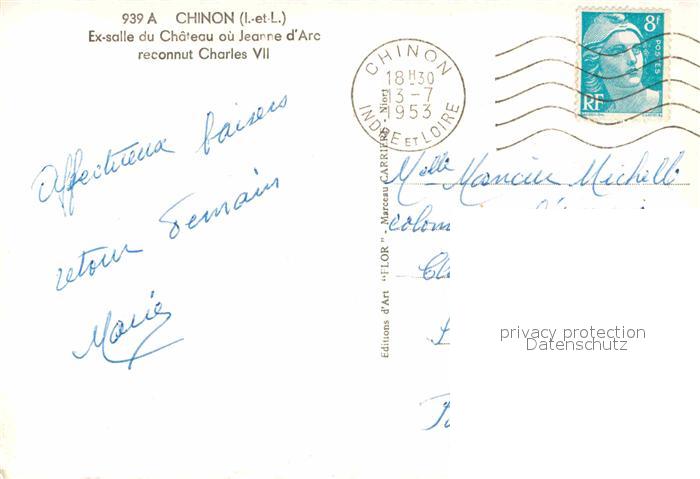 939 A CHINON (I.-et-L.)
Ex-salle du Château où Jeanne d'Arc
reconnut Charles VII
Affectueux baisers
retour demain
Marie
Editions d'Art "FLOR" - Marceau CARRIERE - Niort
CHINON
18 H30
13-7
1953
INDRE ET LOIRE
8F
POSTES
RF
Melle Michelle
colon
privacy protection
Datenschutz